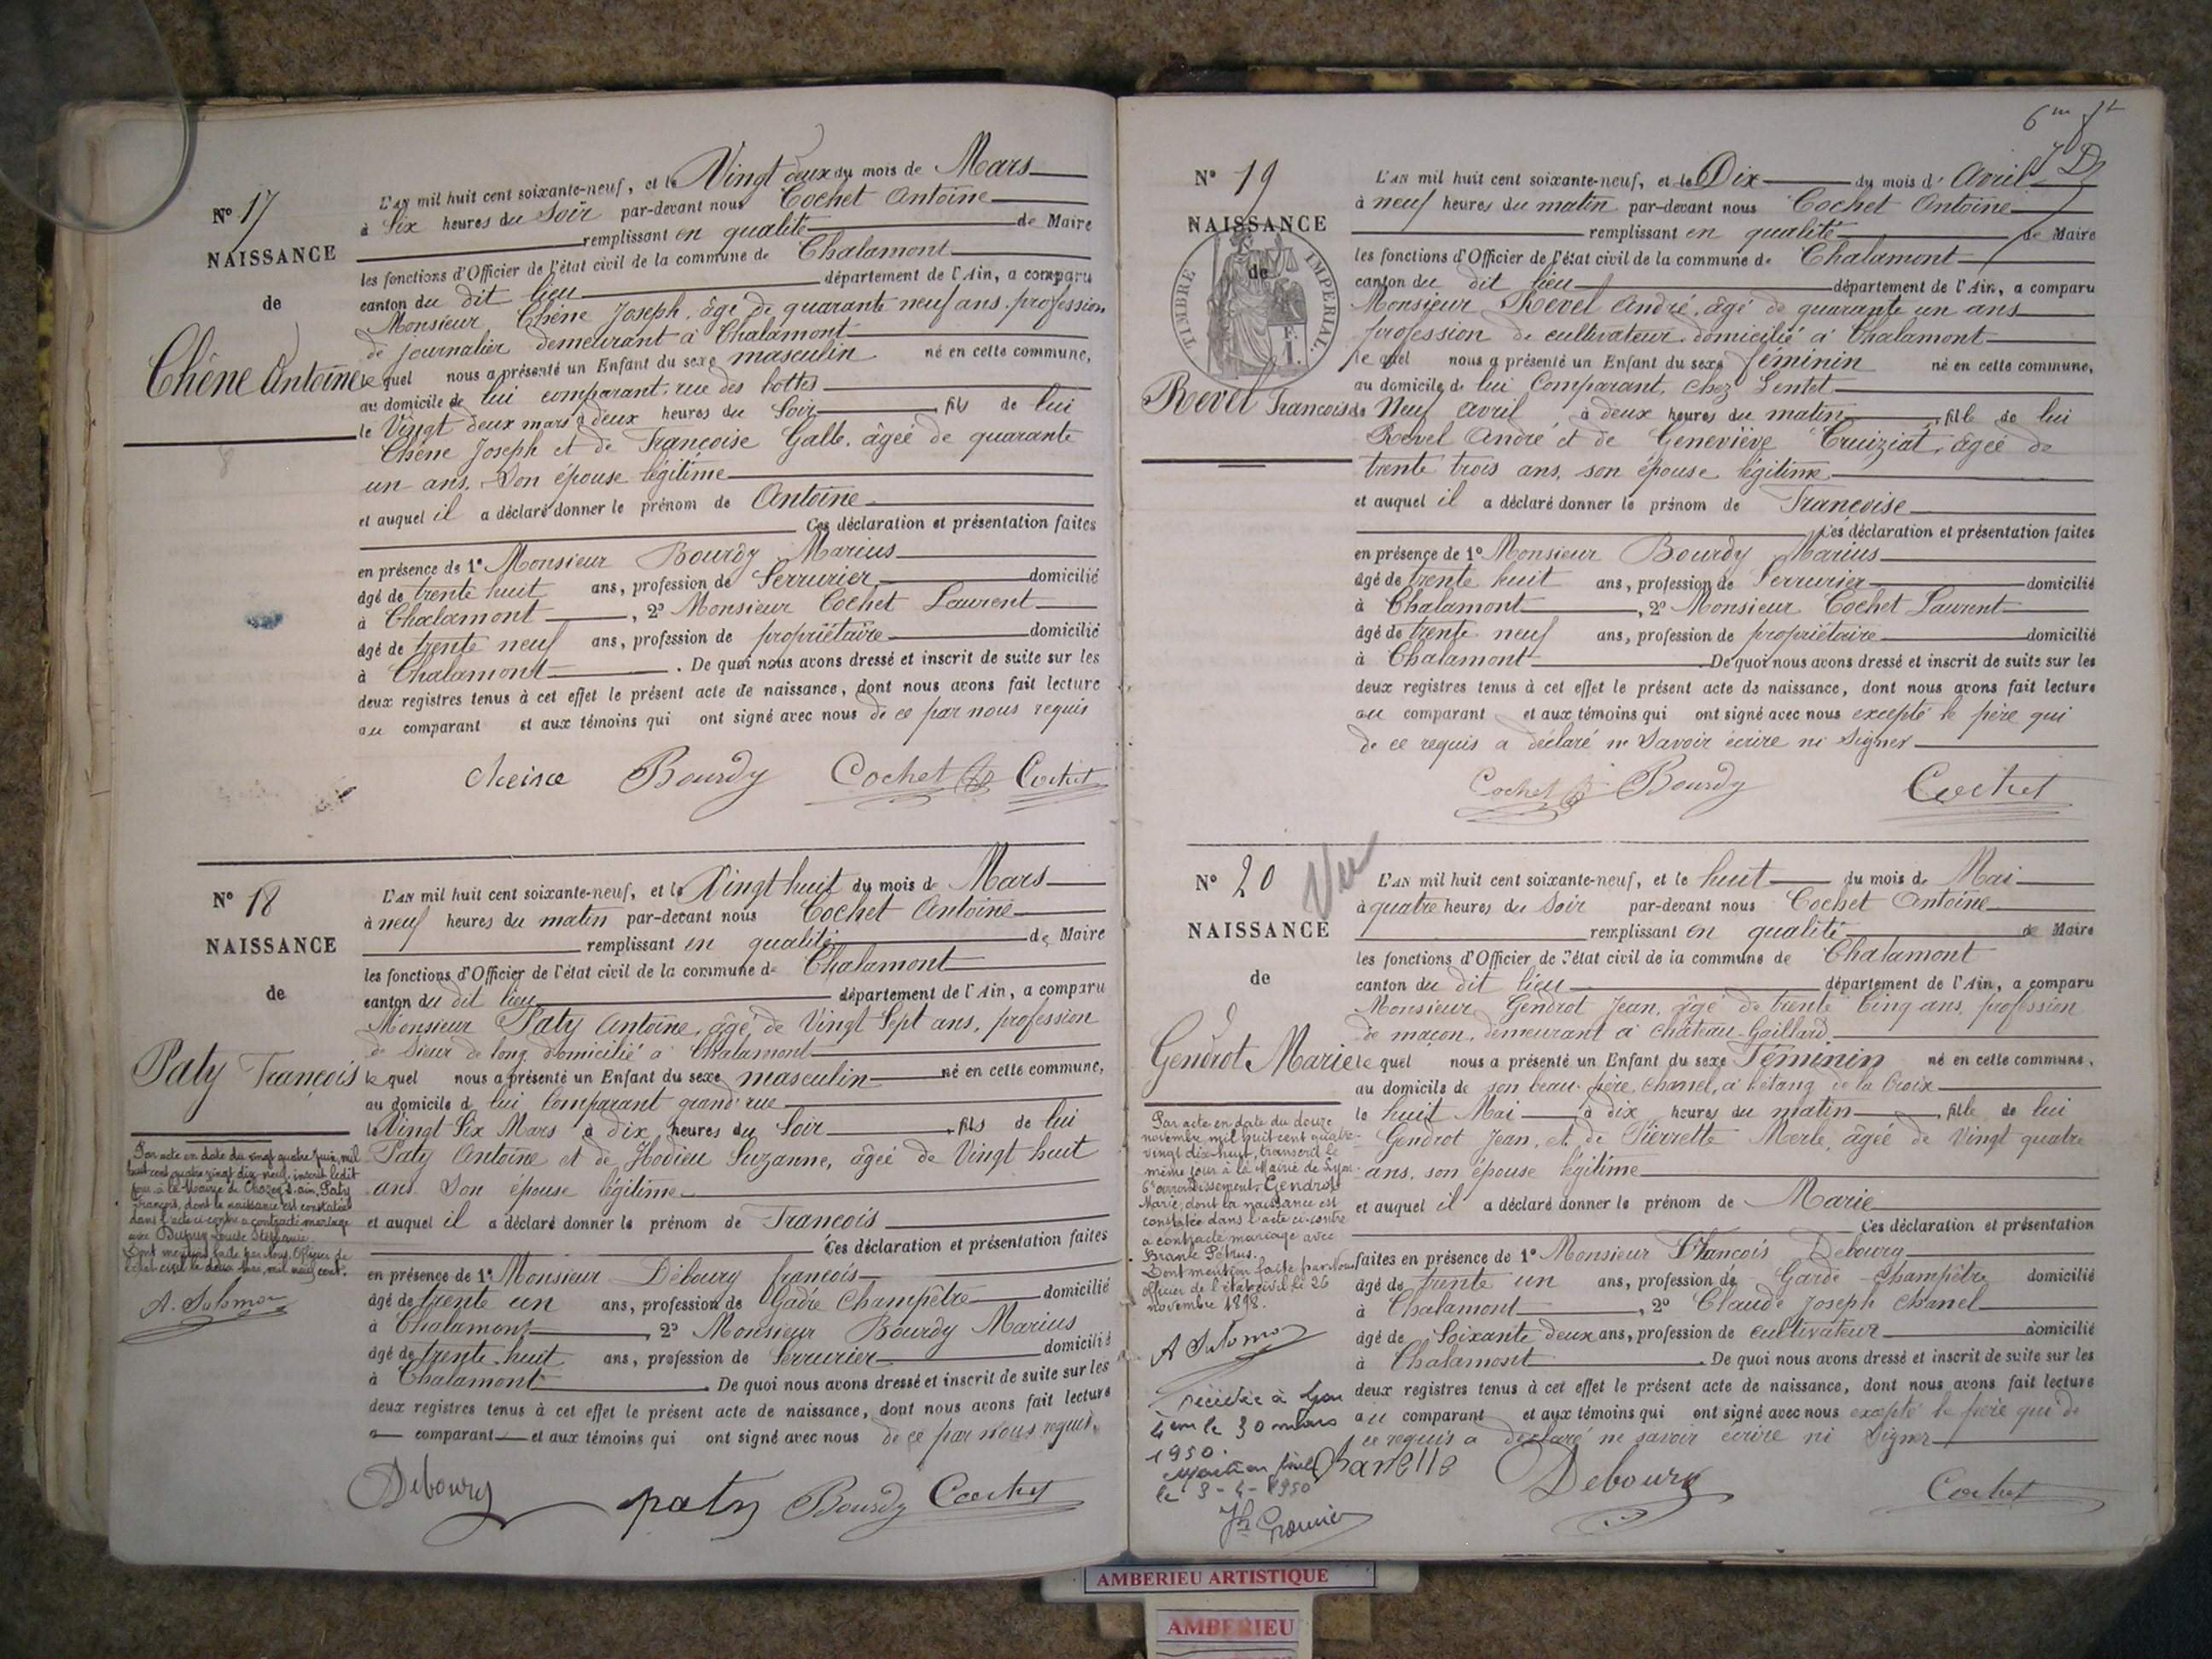 N° 17
NAISSANCE
de
Chêne Antoine
L'AN mil huit cent soixante-neuf, et le Vingt deux du mois de Mars
à Six heures du Soir par-devant nous Cochet Antoine
remplissant en qualité de Maire
les fonctions d'Officier de l'état civil de la commune de Chalamont
canton du dit lieu département de l'Ain, a comparu
Monsieur Chêne Joseph, âgé de quarante neuf ans, profession
de journalier demeurant à Chalamont
le quel nous a présenté un Enfant du sexe masculin né en cette commune,
au domicile de lui comparant, rue des hottes
le Vingt deux mars à deux heures du Soir fils de lui
Chêne Joseph et de Françoise Galle, âgée de quarante
un ans, Son épouse légitime
et auquel il a déclaré donner le prénom de Antoine
Ces déclaration et présentation faites
en présence de 1° Monsieur Bourdy Marius
âgé de trente huit ans, profession de Serrurier domicilié
à Chalamont, 2° Monsieur Cochet Laurent
âgé de trente neuf ans, profession de propriétaire domicilié
à Chalamont. De quoi nous avons dressé et inscrit de suite sur les
deux registres tenus à cet effet le présent acte de naissance, dont nous avons fait lecture
au comparant et aux témoins qui ont signé avec nous de ce par nous requis
Bourdy Cochet Cochet
N° 18
NAISSANCE
de
Paty François
L'AN mil huit cent soixante-neuf, et le Vingt huit du mois de Mars
à neuf heures du matin par-devant nous Cochet Antoine
remplissant en qualité de Maire
les fonctions d'Officier de l'état civil de la commune de Chalamont
canton du dit lieu département de l'Ain, a comparu
Monsieur Paty Antoine, âgé de Vingt Sept ans, profession
de Sieur de long domicilié à Chalamont
le quel nous a présenté un Enfant du sexe masculin né en cette commune,
au domicile de lui Comparant grand'rue
le Vingt Six Mars à dix heures du Soir fils de lui
Paty Antoine et de Hodieu Suzanne, âgée de Vingt huit
ans Son épouse légitime
et auquel il a déclaré donner le prénom de François
Ces déclaration et présentation faites
en présence de 1° Monsieur Déboury françois
âgé de trente un ans, profession de Gadre Champêtre domicilié
à Chalamont, 2° Monsieur Bourdy Marius
âgé de trente huit ans, profession de Serrurier domicilié
à Chalamont. De quoi nous avons dressé et inscrit de suite sur les
deux registres tenus à cet effet le présent acte de naissance, dont nous avons fait lecture
a comparant et aux témoins qui ont signé avec nous de ce par nous requis
Par acte en date du vingt quatre juin, mil
huit cent quatre vingt dix-neuf, inscrit ledit
jour à la Mairie de s. ain, Paty
François, dont la naissance est constatée
dans l'acte ci-contre a contracté mariage
avec Dupuy Louise Stéphanie.
Dont mention faite par Nous, Officier de
l'état civil le deux mai, mil neuf cent.
A. Salomon
Deboury paty Bourdy Cochet
6me ft
7 D
N° 19
NAISSANCE
de
TIMBRE IMPERIAL
1 F.
Revel Francoise
L'AN mil huit cent soixante-neuf, et le Dix du mois d' Avril
à neuf heures du matin par-devant nous Cochet Antoine
remplissant en qualité de Maire
les fonctions d'Officier de l'état civil de la commune de Chalamont
canton du dit lieu département de l'Ain, a comparu
Monsieur Revel André, âgé de quarante un ans
profession de cultivateur domicilié à Chalamont
le quel nous a présenté un Enfant du sexe féminin né en cette commune,
au domicile de lui Comparant, chez Lentet
le Neuf Avril à deux heures du matin fille de lui
Revel André et de Geneviève Cruiziat, âgée de
trente trois ans, son épouse légitime
et auquel il a déclaré donner le prénom de Francoise
Ces déclaration et présentation faites
en présence de 1° Monsieur Bourdy Marius
âgé de trente huit ans, profession de Serrurier domicilié
à Chalamont, 2° Monsieur Cochet Laurent
âgé de trente neuf ans, profession de propriétaire domicilié
à Chalamont De quoi nous avons dressé et inscrit de suite sur les
deux registres tenus à cet effet le présent acte de naissance, dont nous avons fait lecture
au comparant et aux témoins qui ont signé avec nous excepté le père qui
de ce requis a déclaré ne Savoir écrire ni Signer
Cochet Bourdy Cochet
N° 20
Vu
NAISSANCE
de
Gendrot Marie
L'AN mil huit cent soixante-neuf, et le huit du mois de Mai
à quatre heures du Soir par-devant nous Cochet Antoine
remplissant en qualité de Maire
les fonctions d'Officier de l'état civil de la commune de Chalamont
canton du dit lieu département de l'Ain, a comparu
Monsieur Gendrot Jean, âgé de trente Cinq ans, profession
de maçon, demeurant à Château-Gaillard
le quel nous a présenté un Enfant du sexe Féminin né en cette commune,
au domicile de son beau-père Chanel, à l'étang de la Croix
le huit Mai à dix heures du matin fille de lui
Gendrot Jean, et de Pierrette Merle, âgée de Vingt quatre
ans, son épouse légitime
et auquel il a déclaré donner le prénom de Marie
Ces déclaration et présentation
faites en présence de 1° Monsieur François Deboury
âgé de trente un ans, profession de Garde Champêtre domicilié
à Chalamont, 2° Claude Joseph Chanel
âgé de Soixante deux ans, profession de cultivateur domicilié
à Chalamont. De quoi nous avons dressé et inscrit de suite sur les
deux registres tenus à cet effet le présent acte de naissance, dont nous avons fait lecture
au comparant et aux témoins qui ont signé avec nous excepté le père qui de
ce requis a déclaré ne savoir écrire ni Signer
Par acte en date du douze
novembre mil huit cent quatre-
vingt dix-huit, transcrit le
même jour à la Mairie de Lyon
6e arrondissement, Gendrot
Marie, dont la naissance est
constatée dans l'acte ci-contre
a contracté mariage avec
Petrus.
Dont mention faite par Nous
Officier de l'état civil le 26
novembre 1898.
A Salomon
Décédée à Lyon
4em le 30 mars
1950.
Mention faite
le 3-4-1950
Deboury Cochet
AMBERIEU ARTISTIQUE
AMBERIEU